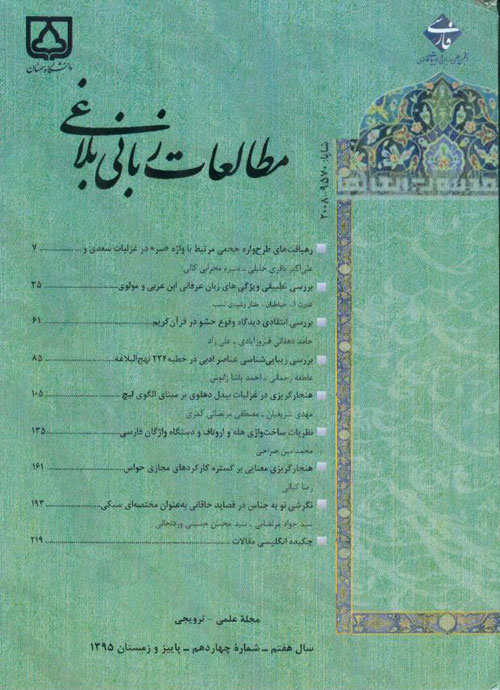 دانشگاه سمنان
مطالعات زبانی بلاغی
شاپا: ۹۵۷۰-۲۰۰۸
رهیافت‌های طرح‌واره حجمی مرتبط با واژه «سر» در غزلیات سعدی و ... ۷
علی‌اکبر باقری خلیلی - منیره محرابی کالی
بررسی تطبیقی ویژگی های زبان عرفانی ابن عربی و مولوی ۳۵
قدرت اله خیاطیان - طناز رشیدی نسب
بررسی انتقادی دیدگاه وقوع حشو در قرآن کریم ۶۱
حامد دهقانی فیروزآبادی - علی راد
بررسی زیبایی‌شناسی عناصر ادبی در خطبه ۲۲۴ نهج‌البلاغه ۸۵
عاطفه رحمانی - احمد پاشا زانوس
هنجارگریزی در غزلیات بیدل دهلوی بر مبنای الگوی لیچ ۱۰۵
مهدی شریفیان - مصطفی مرتضائی کمری
نظریات ساخت‌واژی هله و ارونف و دستگاه واژگان فارسی ۱۳۵
محمدمبین صراحی
هنجارگریزی معنایی بر گستره کارکردهای مجازی حواس ۱۶۱
رضا کیانی
نگرشی نو به جناس در قصاید خاقانی به‌عنوان مختصه‌ای سبکی ۱۹۳
سید جواد مرتضایی - سید محسن حسینی وردنجانی
چکیده انگلیسی مقالات ۲۱۹
مجلهٔ علمی - ترویجی
سال هفتم - شمارهٔ چهاردهم - پاییز و زمستان ۱۳۹۵